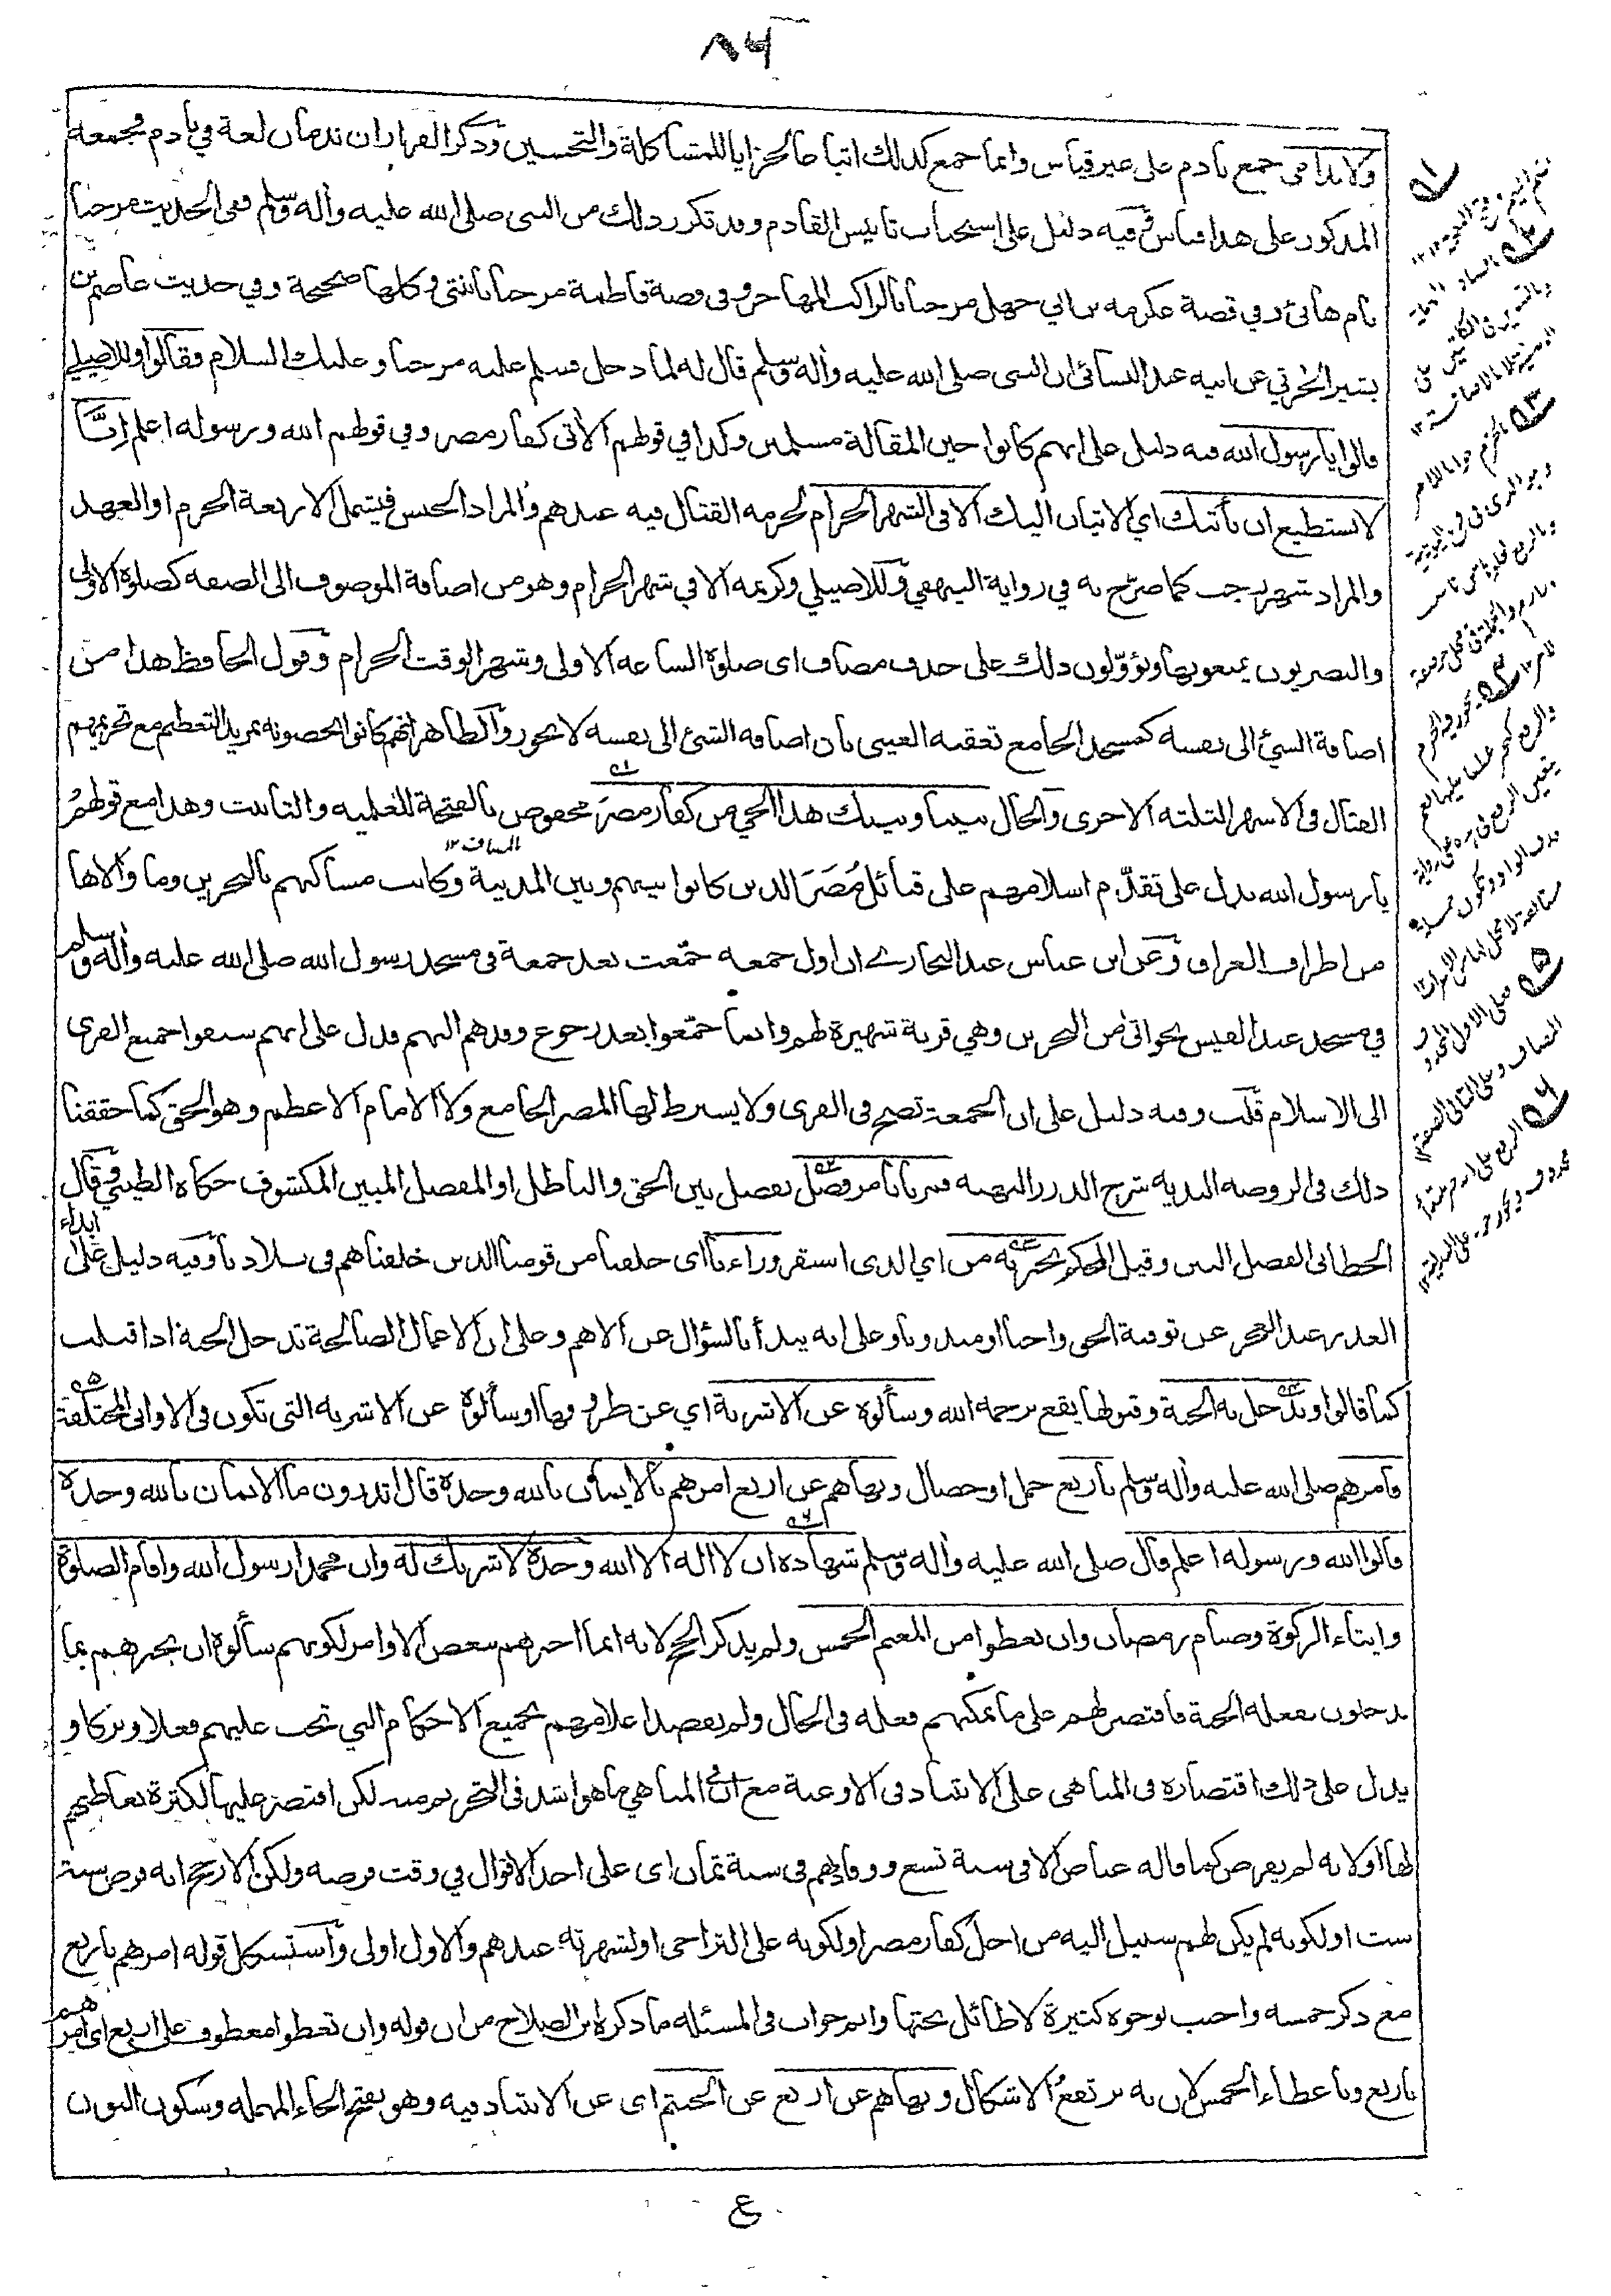 ٨٦
ولا ندامى جمع نادم على غير قياس وانما جمع كذلك اتباعا لخزايا للمشاكلة والتحسين وذكر القزاز ان ندمان لغة في نادم فجمعه
المذكور على هذا قياس وفيه دليل على استحباب تأنيس القادم وقد تكرر ذلك من النبى صلى الله عليه وأله وسلم ففى الحديث مرحبا
بام هانئ وفي قصة عكرمه بن ابي جهل مرحبا بالراكب المهاجر وفى قصة فاطمة مرحبا بابنتى وكلها صحيحة وفي حديث عاصم بن
بشير الحرثي عن ابيه عند النسائى ان النبى صلى الله عليه وأله وسلم قال له لما دخل فسلم عليه مرحبا وعليك السلام فقالوا وللاصيلي
قالوا يا رسول الله فيه دليل على انهم كانوا حين المقالة مسلمين وكذا في قولهم الأتى كفار مضر وفي قولهم الله ورسوله اعلم انّا
لا نستطيع ان نأتيك اي الاتيان اليك الا فى الشهر الحرام لحرمه القتال فيه عندهم والمراد الجنس فيشمل الاربعة الحرم او العهد
والمراد شهر رجب كما صرّح به في رواية البيهقي وللاصيلي وكريمه الا في شهر الحرام وهو من اضافة الموصوف الى الصفه كصلوة الاولى
والبصريون يمنعونها ويؤوّلون ذلك على حذف مضاف اى صلوة الساعه الاولى وشهر الوقت الحرام وقول الحافظ هذا من
اضافة الشئ الى نفسه كمسجد الجامع تعقبه العينى بان اضافه الشئ الى نفسه لا يجوز والظاهر انهم كانوا يخصونه بمزيد التعظيم مع تحريمهم
القتال فى الاشهر الثلثه الاخرى والحال بيننا وبينك هذا الحي من كفار مضرَ مخفوض بالفتحة للعلميه والتانيث وهذا مع قولهمُ
يا رسول الله يدل على تقدّم اسلامهم على قبائل مُضَرَ الذين كانوا بينهم وبين المدينة وكانت مساكنهم بالبحرين وما والاها
من اطراف العراق وعن ابن عباس عند البخارے ان اول جمعه جمّعت بعد جمعة فى مسجد رسول الله صلى الله عليه وأله وسلم
في مسجد عبد القيس بجواثى من البحرين وهي قرية شهيرة لهم وانما جمّعوا بعد رجوع وفدهم اليهم فدل على انهم سبقوا جميع القرى
الى الاسلام قلت وفيه دليل على ان الجمعة تصح فى القرى ولا يشترط لها المصر الجامع ولا الامام الاعظم وهو الحق كما حققنا
ذلك فى الروضه النديه شرح الدرر البهيه فمرنا بامر فصل يفصل بين الحق والباطل او المفصل المبين المكشوف حكاه الطيبي وقال
الخطابى الفصل البين وقيل المحكم نخبر به من اي الذى استقر وراءنا اى خلفنا من قومنا الذين خلفناهم فى بلادنا وفيه دليل على ابداء
العذر عند العجز عن توفية الحق واجبا او مندوبا وعلى انه يبدأ بالسؤال عن الاهم وعلى ان الاعمال الصالحة تدخل الجنة اذا قبلت
كما قالوا وندخل به الجنة وقبولها يقع برحمة الله وسألوه عن الاشربة اي عن ظروفها او سألوه عن الاشربه التى تكون فى الاوانى المختلفة
فامرهم صلى الله عليه وأله وسلم باربع جمل او خصال ونهاهم عن اربع امرهم بالايمان بالله وحده قال اتدرون ما الايمان بالله وحده
قالوا الله ورسوله اعلم قال صلى الله عليه وأله وسلم شهادة ان لا اله الا الله وحده لا شريك له وان محمدا رسول الله واقام الصلوة
وايتاء الزكوة وصيام رمضان وان تعطوا من المغنم الخمس ولم يذكر الحج لانه انما اخبرهم ببعض الاوامر لكونهم سألوه ان يخبرهم بما
يدخلون بفعله الجنة فاقتصر لهم على ما يمكنهم فعله فى الحال ولم يقصد اعلامهم بجميع الاحكام التي تجب عليهم فعلا وتركا و
يدل على ذلك اقتصاره فى المناهى على الانتباذ فى الاوعية مع ان فى المناهي ما هو اشد فى التحريم منه لكن اقتصر عليها لكثرة تعاطيهم
لها او لانه لم يفرض كما قاله عياض الا فى سنة تسع ووفادتهم فى سنة ثمان اى على احد الاقوال في وقت فرضه ولكن الارجح انه فرض سنة
ست او لكونه لم يكن لهم سبيل اليه من اجل كفار مضر او لكونه على التراخى او لشهرته عندهم والاول اولى واستشكل قوله امرهم باربع
مع ذكر خمسه واجيب بوجوه كثيرة لا طائل تحتها واتم جواب فى المسئله ما ذكره ابن الصلاح من ان قوله وان تعطوا معطوف على اربع اى امرهم
باربع وباعطاء الخمس لان به يرتفع الاشكال ونهاهم عن اربع عن الحنتم اى عن الانتباذ فيه وهو بفتح الحاء المهمله وسكون النون
ع